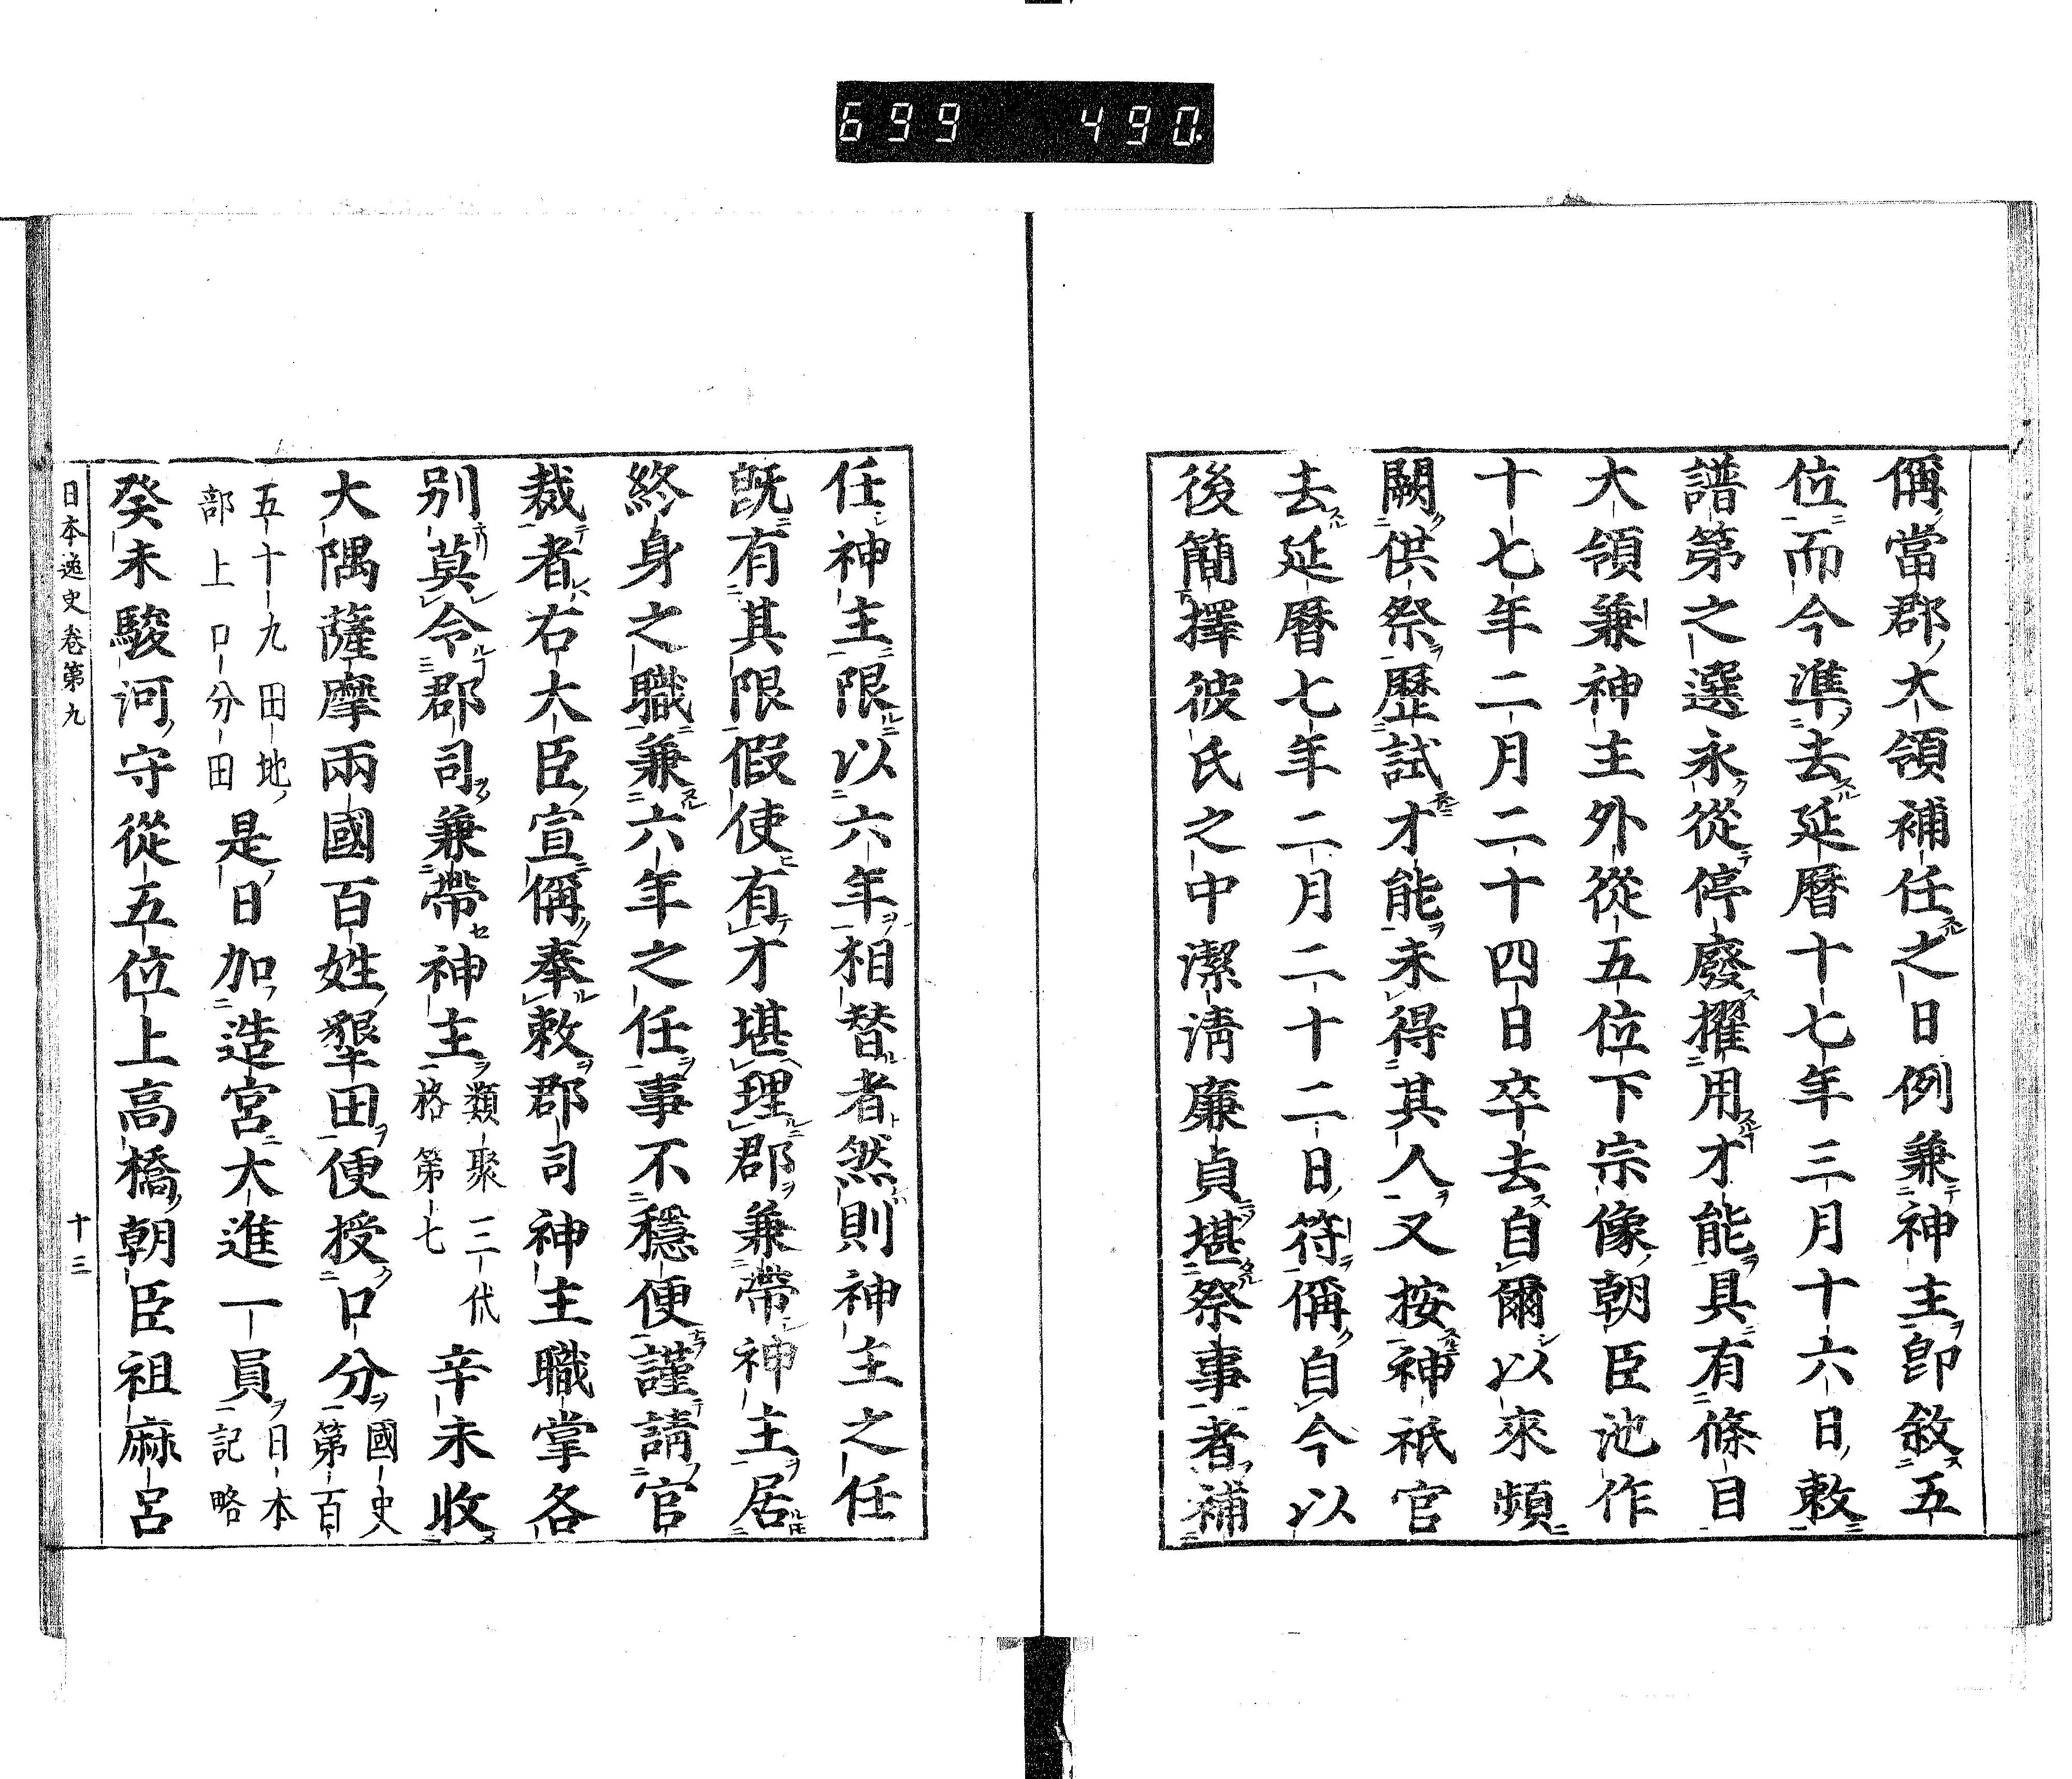 699 490
偁當郡大領補任之日例兼神主即敘五
位而今準去延曆十七年三月十六日敕
譜第之選永從停廢擢用才能具有條目
大領兼神主外從五位下宗像朝臣池作
十七年二月二十四日卒去自爾以來頻
闕供祭歷試才能未得其人又按神祇官
去延曆七年二月二十二日符偁自今以
後簡擇彼氏之中潔淸廉貞堪祭事者補
任神主限以六年相替者然則神主之任
旣有其限假使有才堪理郡兼帶神主居
終身之職兼六年之任事不穩便謹請官
裁者右大臣宣偁奉敕郡司神主職掌各
别莫令郡司兼帶神主類聚三代格第七辛未收
大隅薩摩兩國百姓墾田便授口分國史第百
五十九田地部上口分田是日加造宮大進一員日本記略
癸未駿河守從五位上高橋朝臣祖麻呂
日本逸史卷第九 十三